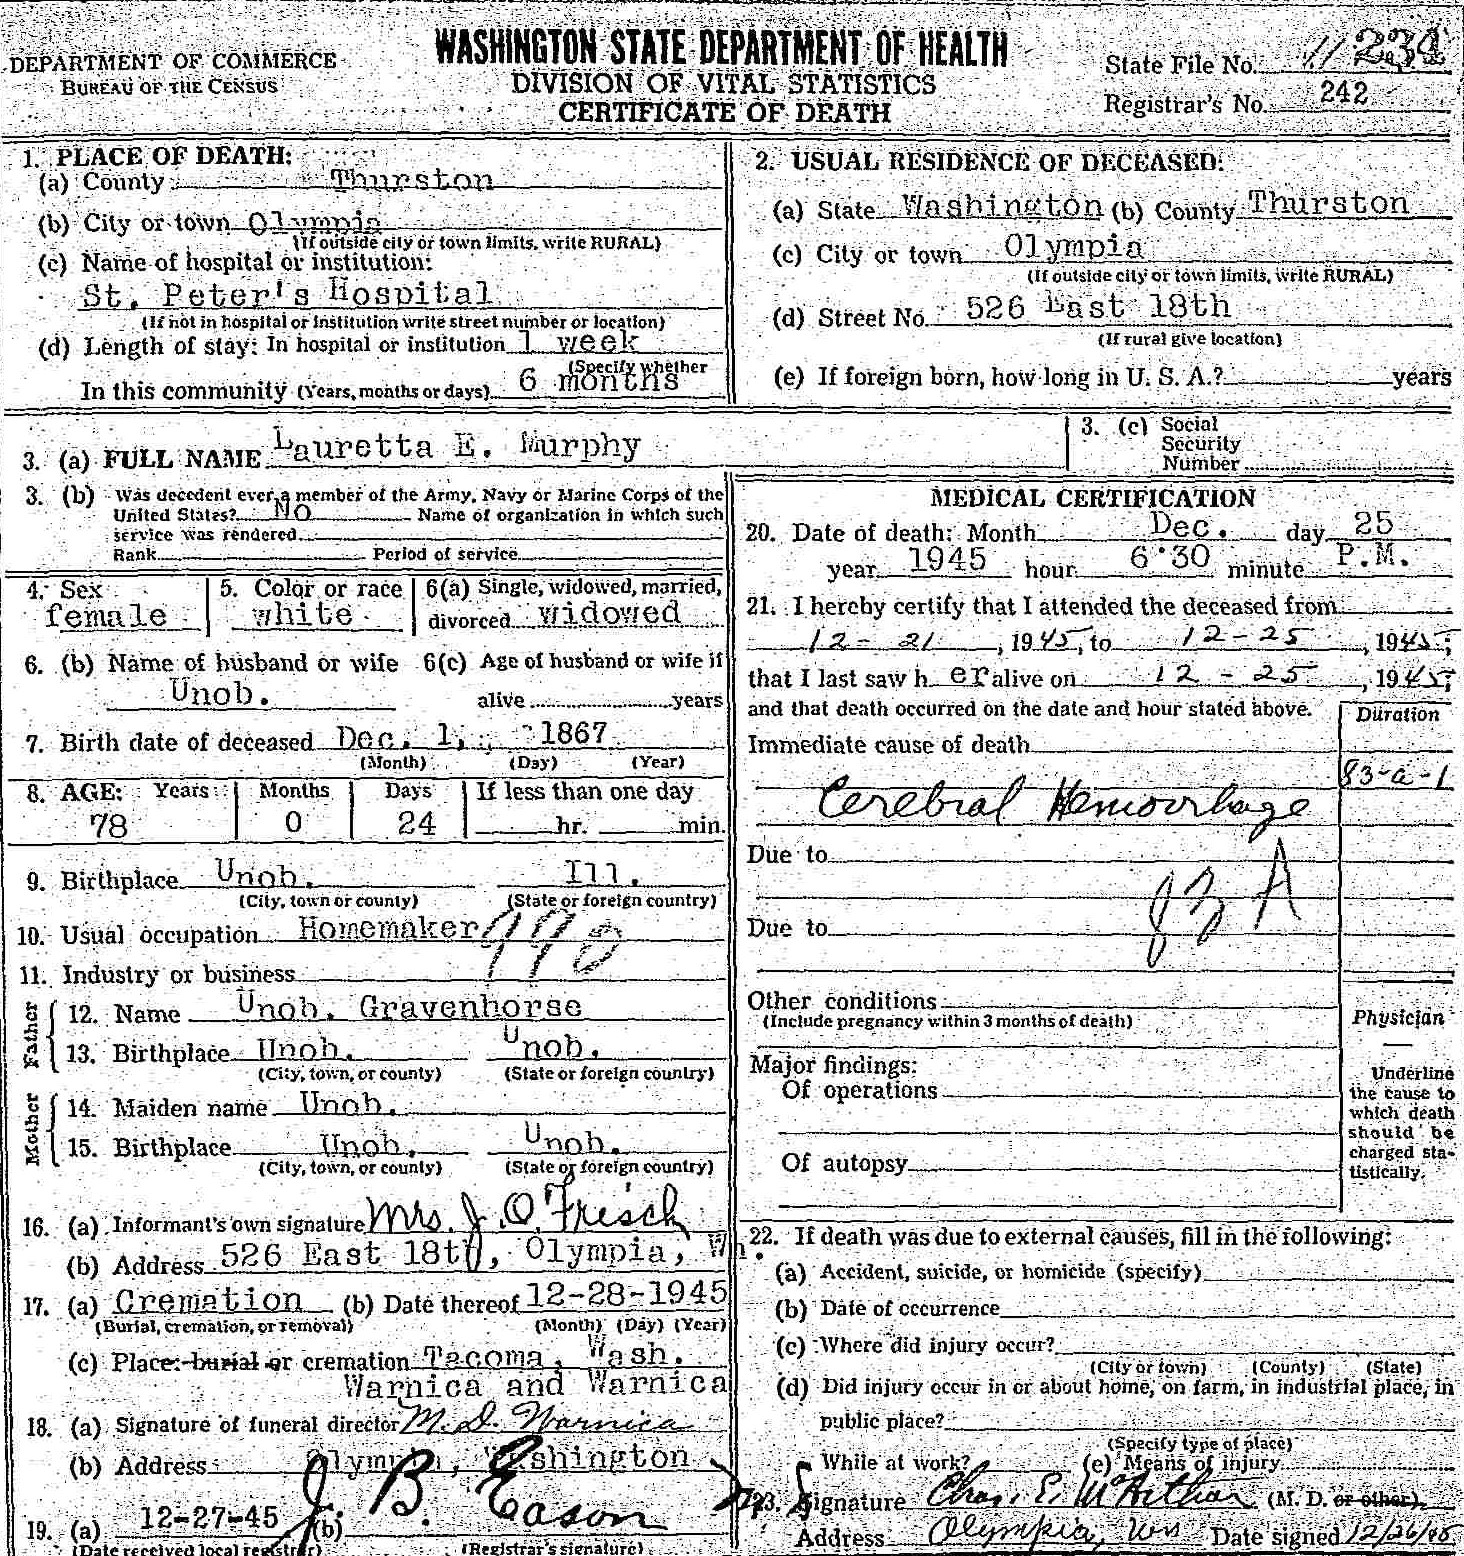 WASHINGTON STATE DEPARTMENT OF HEALTH
DEPARTMENT OF COMMERCE
BUREAU OF THE CENSUS
DIVISION OF VITAL STATISTICS
CERTIFICATE OF DEATH
State File No.
Registrar's No. 242
1. PLACE OF DEATH:
(a) County Thurston
(b) City or town Olympia
(If outside city or town limits, write RURAL)
(c) Name of hospital or institution:
St. Peter's Hospital
(If not in hospital or institution write street number or location)
(d) Length of stay: In hospital or institution 1 week
(Specify whether
In this community (Years, months or days) 6 months
2. USUAL RESIDENCE OF DECEASED:
(a) State Washington (b) County Thurston
(c) City or town Olympia
(If outside city or town limits, write RURAL)
(d) Street No. 526 East 18th
(If rural give location)
(e) If foreign born, how long in U. S. A.? years
3. (a) FULL NAME Lauretta E. Murphy
3. (c) Social
Security
Number
3. (b) Was decedent ever a member of the Army, Navy or Marine Corps of the
United States? No Name of organization in which such
service was rendered
Rank Period of service
4. Sex
female
5. Color or race
white
6(a) Single, widowed, married,
divorced widowed
6. (b) Name of husband or wife
Unob.
6(c) Age of husband or wife if
alive years
7. Birth date of deceased Dec. 1, 1867
(Month) (Day) (Year)
8. AGE: Years Months Days If less than one day
78 0 24 hr. min.
9. Birthplace Unob. Ill.
(City, town or county) (State or foreign country)
10. Usual occupation Homemaker
11. Industry or business
Father
12. Name Unob. Gravenhorse
13. Birthplace Unob. Unob.
(City, town, or county) (State or foreign country)
Mother
14. Maiden name Unob.
15. Birthplace Unob. Unob.
(City, town, or county) (State or foreign country)
16. (a) Informant's own signature Mrs. J. O. Frisch
(b) Address 526 East 18th, Olympia, Wn.
17. (a) Cremation (b) Date thereof 12-28-1945
(Burial, cremation, or removal) (Month) (Day) (Year)
(c) Place: burial or cremation Tacoma, Wash.
Warnica and Warnica
18. (a) Signature of funeral director M. D. Warnica
(b) Address Olympia, Washington
19. (a) 12-27-45 (b) J. B. Eason
(Date received local registrar) (Registrar's signature)
MEDICAL CERTIFICATION
20. Date of death: Month Dec. day 25
year 1945 hour 6:30 minute P.M.
21. I hereby certify that I attended the deceased from
12-21, 1945, to 12-25, 1945;
that I last saw h er alive on 12-25, 1945;
and that death occurred on the date and hour stated above.
Duration
Immediate cause of death
83-a-1
Cerebral Hemorrhage
Due to
Due to
Other conditions
(Include pregnancy within 3 months of death)
Major findings:
Of operations
Of autopsy
Physician
Underline
the cause to
which death
should be
charged sta-
tistically.
22. If death was due to external causes, fill in the following:
(a) Accident, suicide, or homicide (specify)
(b) Date of occurrence
(c) Where did injury occur?
(City or town) (County) (State)
(d) Did injury occur in or about home, on farm, in industrial place, in
public place?
(Specify type of place)
While at work? (e) Means of injury
23. Signature Chas. E. McArthur (M. D. or other)
Address Olympia, Wn Date signed 12/26/45